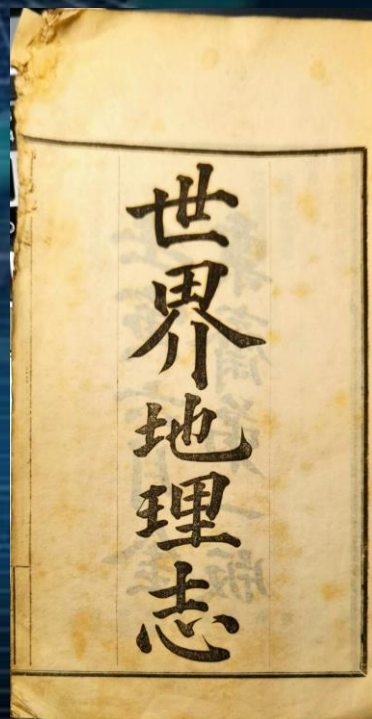 世界地理志